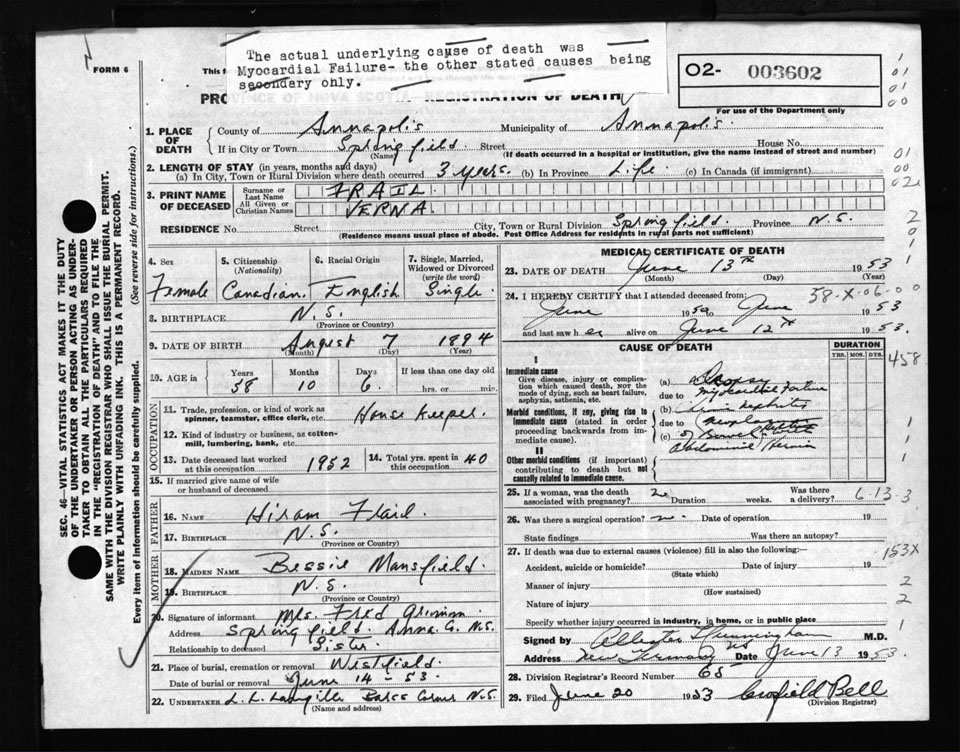 The actual underlying cause of death was
Myocardial Failure- the other stated causes being
secondary only.
FORM 6
This f
O2- 003602
For use of the Department only
PROVINCE OF NOVA SCOTIA—REGISTRATION OF DEATH
1. PLACE OF DEATH
County of Annapolis Municipality of Annapolis.
If in City or Town Springfield. Street House No.
(Name) (If death occurred in a hospital or institution, give the name instead of street and number)
2. LENGTH OF STAY (in years, months and days)
(a) In City, Town or Rural Division where death occurred 3 years. (b) In Province Life. (c) In Canada (if immigrant)
3. PRINT NAME OF DECEASED
Surname or Last Name FRAIL.
All Given or Christian Names VERNA.
RESIDENCE No. Street City, Town or Rural Division Springfield. Province N.S.
(Residence means usual place of abode. Post Office Address for residents in rural parts not sufficient)
4. Sex Female
5. Citizenship (Nationality) Canadian.
6. Racial Origin English
7. Single, Married, Widowed or Divorced (write the word) Single.
8. BIRTHPLACE N.S.
(Province or Country)
9. DATE OF BIRTH August 7 1894
(Month) (Day) (Year)
10. AGE in Years 58 Months 10 Days 6 If less than one day old
hrs. or min.
OCCUPATION
11. Trade, profession, or kind of work as spinner, teamster, office clerk, etc. House Keeper.
12. Kind of industry or business, as cotten-mill, lumbering, bank, etc.
13. Date deceased last worked at this occupation 1952
14. Total yrs. spent in this occupation 40
15. If married give name of wife or husband of deceased
FATHER
16. NAME Hiram Frail.
17. BIRTHPLACE N.S.
(Province or Country)
MOTHER
18. MAIDEN NAME Bessie Mansfield.
19. BIRTHPLACE N.S.
(Province or Country)
20. Signature of informant Mrs. Fred Grimm.
Address Springfield. Anna. Co. N.S.
Relationship to deceased Sister
21. Place of burial, cremation or removal Westfield.
Date of burial or removal June 14 - 53.
22. UNDERTAKER N.S.
(Name and address)
MEDICAL CERTIFICATE OF DEATH
23. DATE OF DEATH June 13th 1953
(Month) (Day) (Year)
24. I HEREBY CERTIFY that I attended deceased from:
58-X-06-00
June 1950 to June 1953
and last saw her alive on June 12th 1953.
CAUSE OF DEATH
DURATION
YRS. MOS. DYS.
458
I
Immediate cause
Give disease, injury or complication which caused death, NOT the mode of dying, such as heart failure, asphyxia, asthenia, etc.
Morbid conditions, if any, giving rise to immediate cause (stated in order proceeding backwards from immediate cause).
II
Other morbid conditions (if important) contributing to death but not causally related to immediate cause.
(a)
due to myocardial failure
(b) nephritis
due to
(c) Bowel
Abdominal Hernia
25. If a woman, was the death associated with pregnancy? Duration weeks. Was there a delivery?
6-13-3
26. Was there a surgical operation? Date of operation 19
State findings Was there an autopsy?
27. If death was due to external causes (violence) fill in also the following:—
153X
Accident, suicide or homicide? Date of injury 19
(State which)
Manner of injury
(How sustained)
Nature of injury
Specify whether injury occurred in industry, in home, or in public place
Signed by Cunningham M.D.
Address New Germany NS Date June 13 1953.
28. Division Registrar's Record Number 65
29. Filed June 20 1953 Crofield Bell
(Division Registrar)
SEC. 46—VITAL STATISTICS ACT MAKES IT THE DUTY
OF THE UNDERTAKER OR PERSON ACTING AS UNDER-
TAKER TO OBTAIN ALL THE PARTICULARS REQUIRED
IN THE "REGISTRATION OF DEATH" AND TO FILE THE
SAME WITH THE DIVISION REGISTRAR WHO SHALL ISSUE THE BURIAL PERMIT.
WRITE PLAINLY WITH UNFADING INK. THIS IS A PERMANENT RECORD.
Every item of information should be carefully supplied. (See reverse side for instructions.)